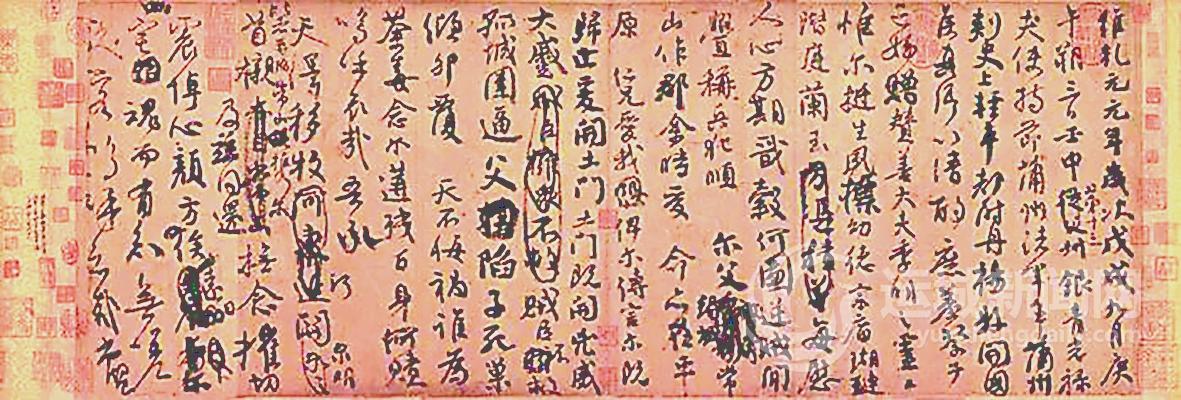 維乾元元年歲次戊戌九月庚
午朔三日壬申第十三叔銀青光祿
夫使持節蒲州諸軍事蒲州
刺史上輕車都尉丹楊縣開國
侯真卿以清酌庶羞祭于
亡姪贈贊善大夫季明之靈曰
惟爾挺生夙標幼德宗廟瑚璉
階庭蘭玉方憑積善每慰
人心方期戩穀何圖逆賊閒
釁稱兵犯順 爾父竭誠常
山作郡余時受 命亦在平
原 仁兄愛我俾爾傳言爾既
歸止爰開土門土門既開兇威
大蹙賊臣擁眾不救賊臣不救
孤城圍逼父陷子死巢
傾卵覆 天不悔禍誰為
荼毒念爾遘殘百身何贖
嗚乎哀哉吾承
天澤移牧河關
首櫬
及茲同還
撫念摧切
震悼心顏方俟遠日
宅魂而有知無嗟
久客嗚呼哀哉尚饗
运城新闻网